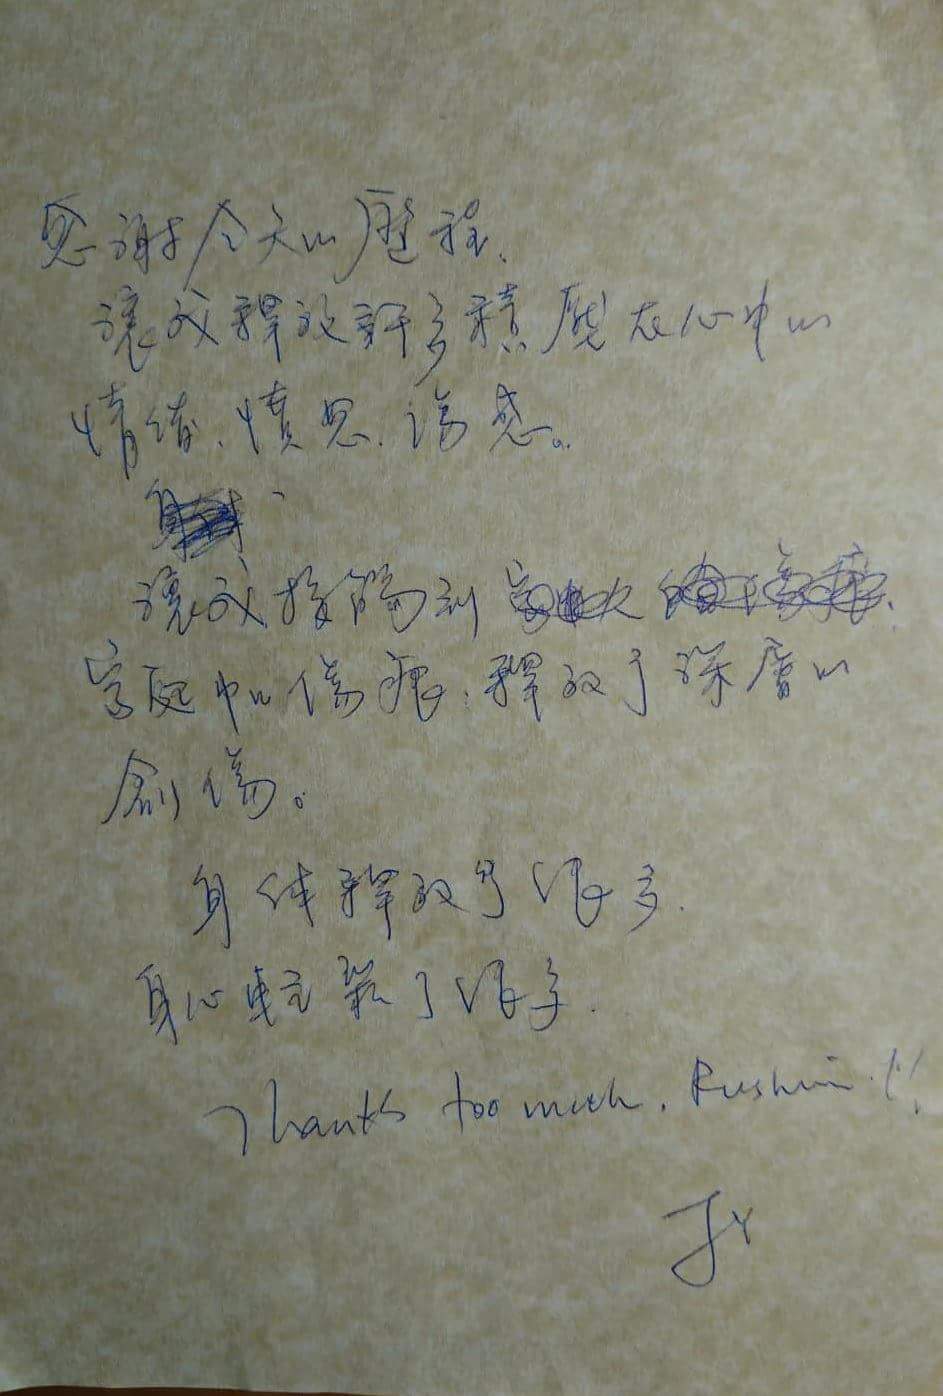 感謝今天的歷程,
讓我釋放許多積壓在心中的
情緒、憤怒、傷感。
讓我接觸到
家庭中的傷痕,釋放了深層的
創傷。
身体釋放了很多.
身心輕鬆了很多.
Thanks too much, Rushmi !!
JY